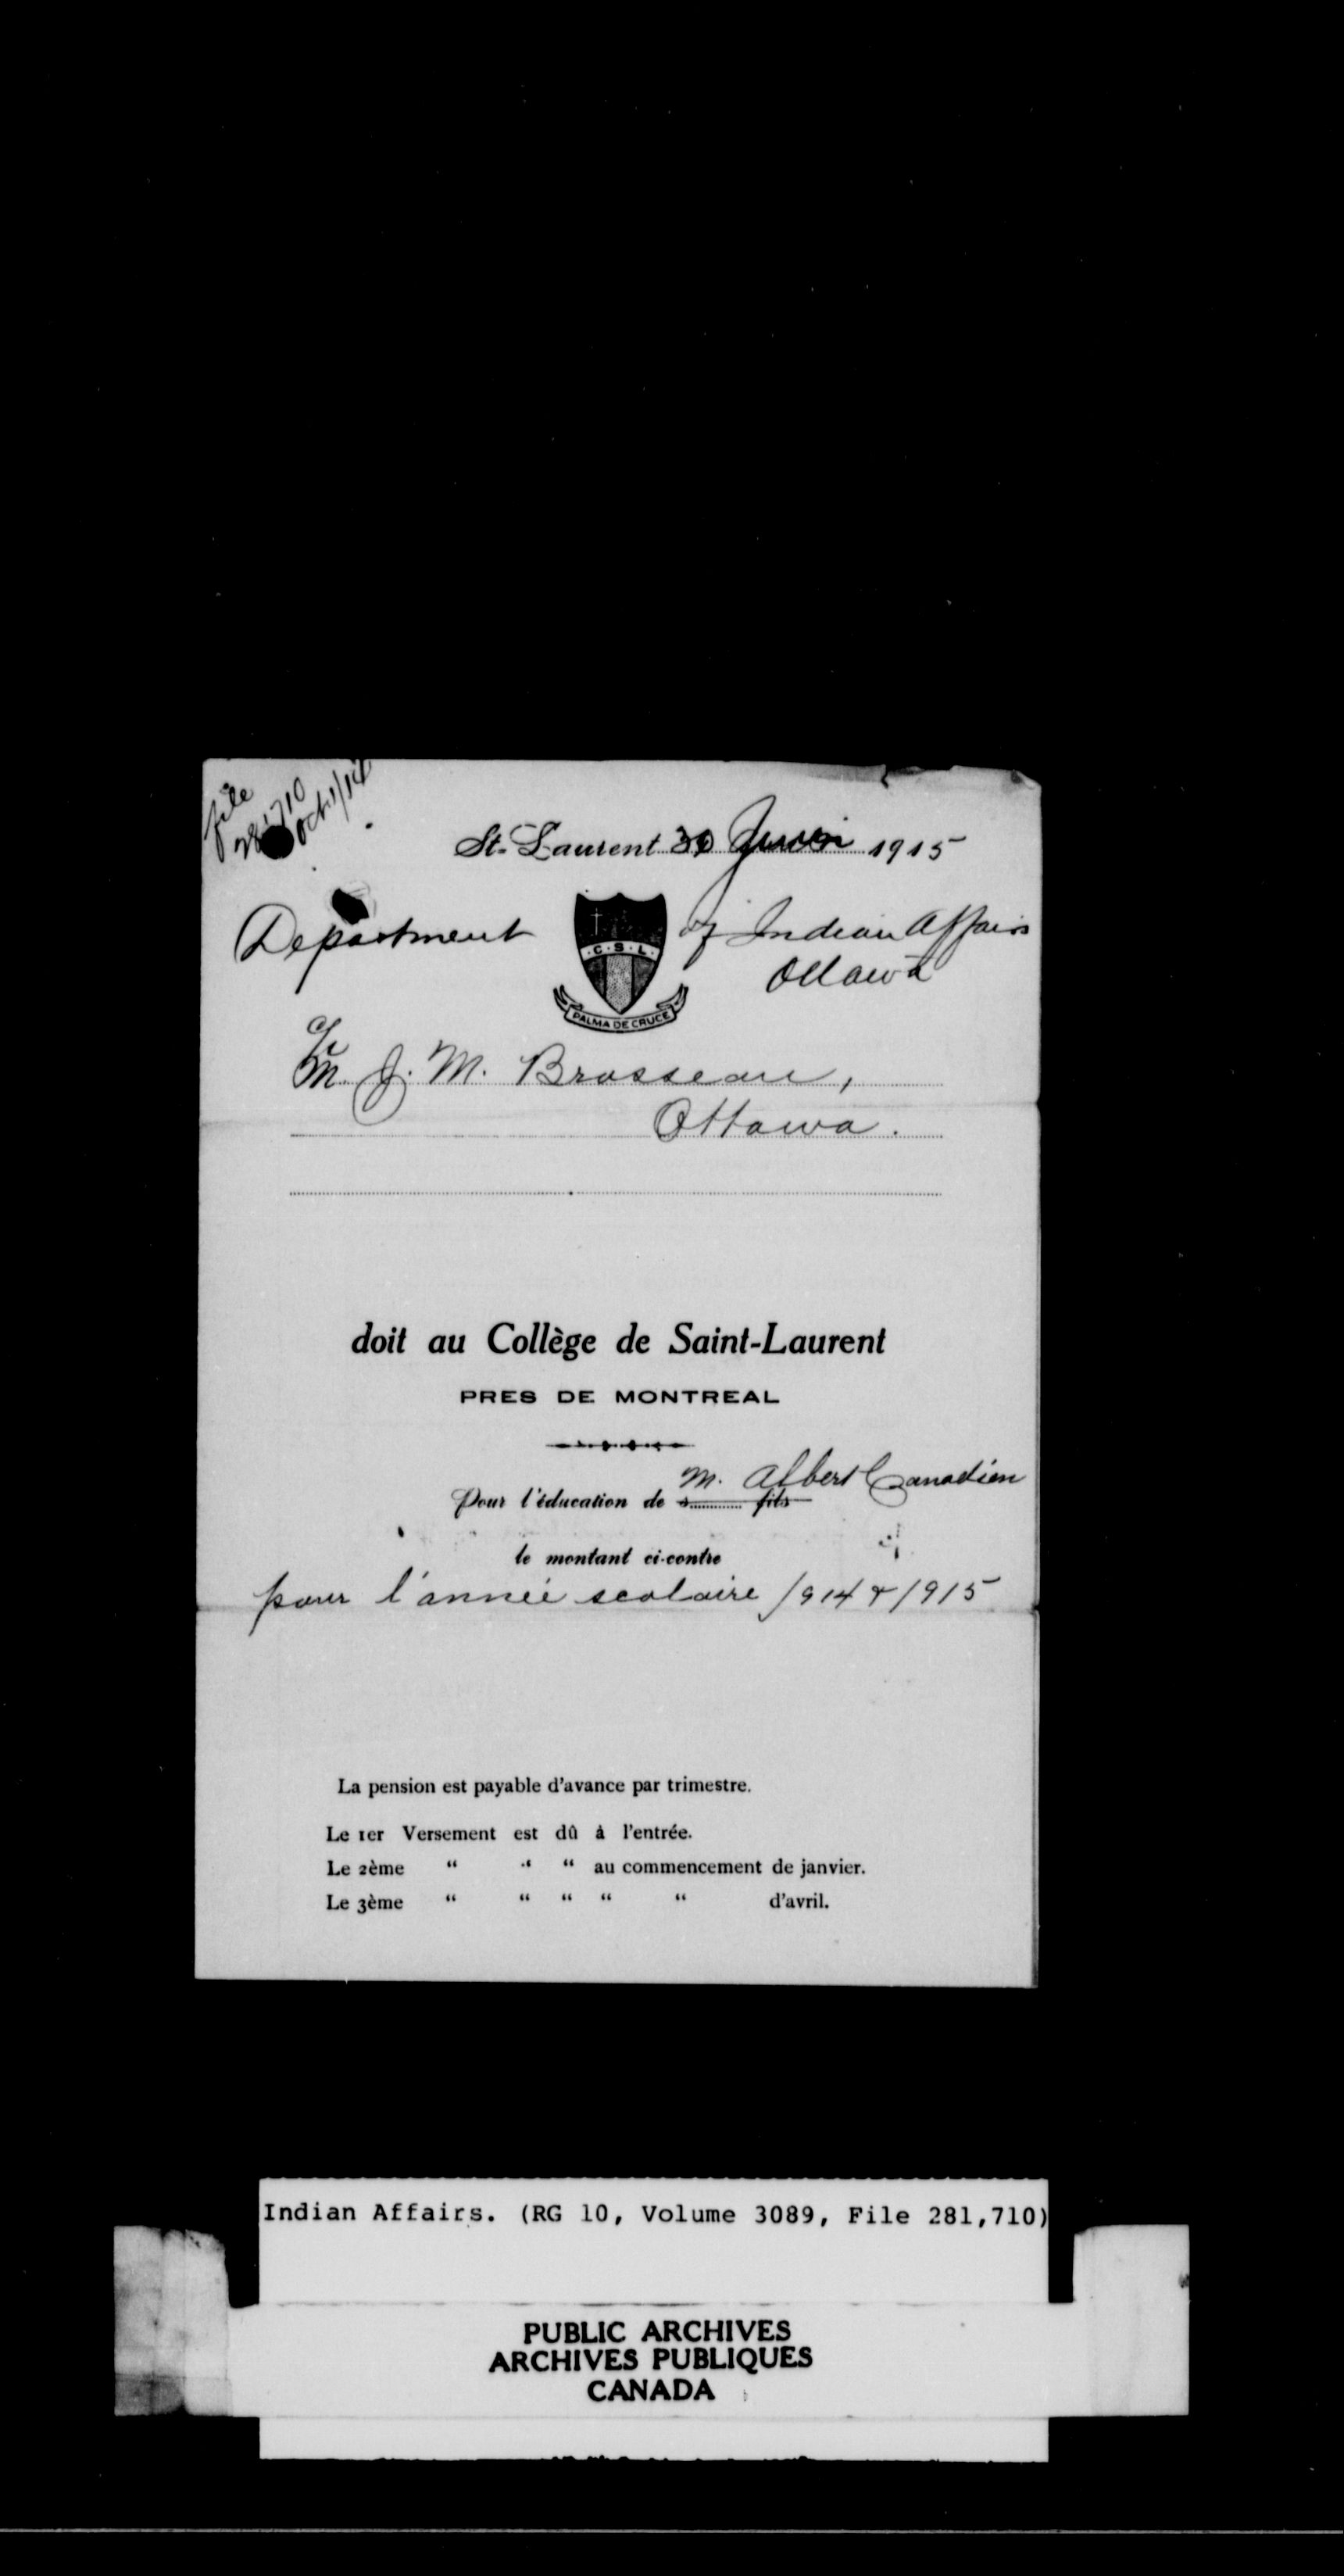 file
Oct 1/14
St-Laurent 30 Juin 1915
Department of Indian Affairs
Ottawa
· C · S · L ·
PALMA DE CRUCE
c/o
M. J. M. Brosseau,
Ottawa.
doit au Collège de Saint-Laurent
PRES DE MONTREAL
M. Albert Canadien
Pour l'éducation de s......... fils
le montant ci-contre
pour l'année scolaire 1914 & 1915
La pension est payable d'avance par trimestre.
Le 1er Versement est dû à l'entrée.
Le 2ème " " " au commencement de janvier.
Le 3ème " " " " " d'avril.
Indian Affairs. (RG 10, Volume 3089, File 281,710)
PUBLIC ARCHIVES
ARCHIVES PUBLIQUES
CANADA